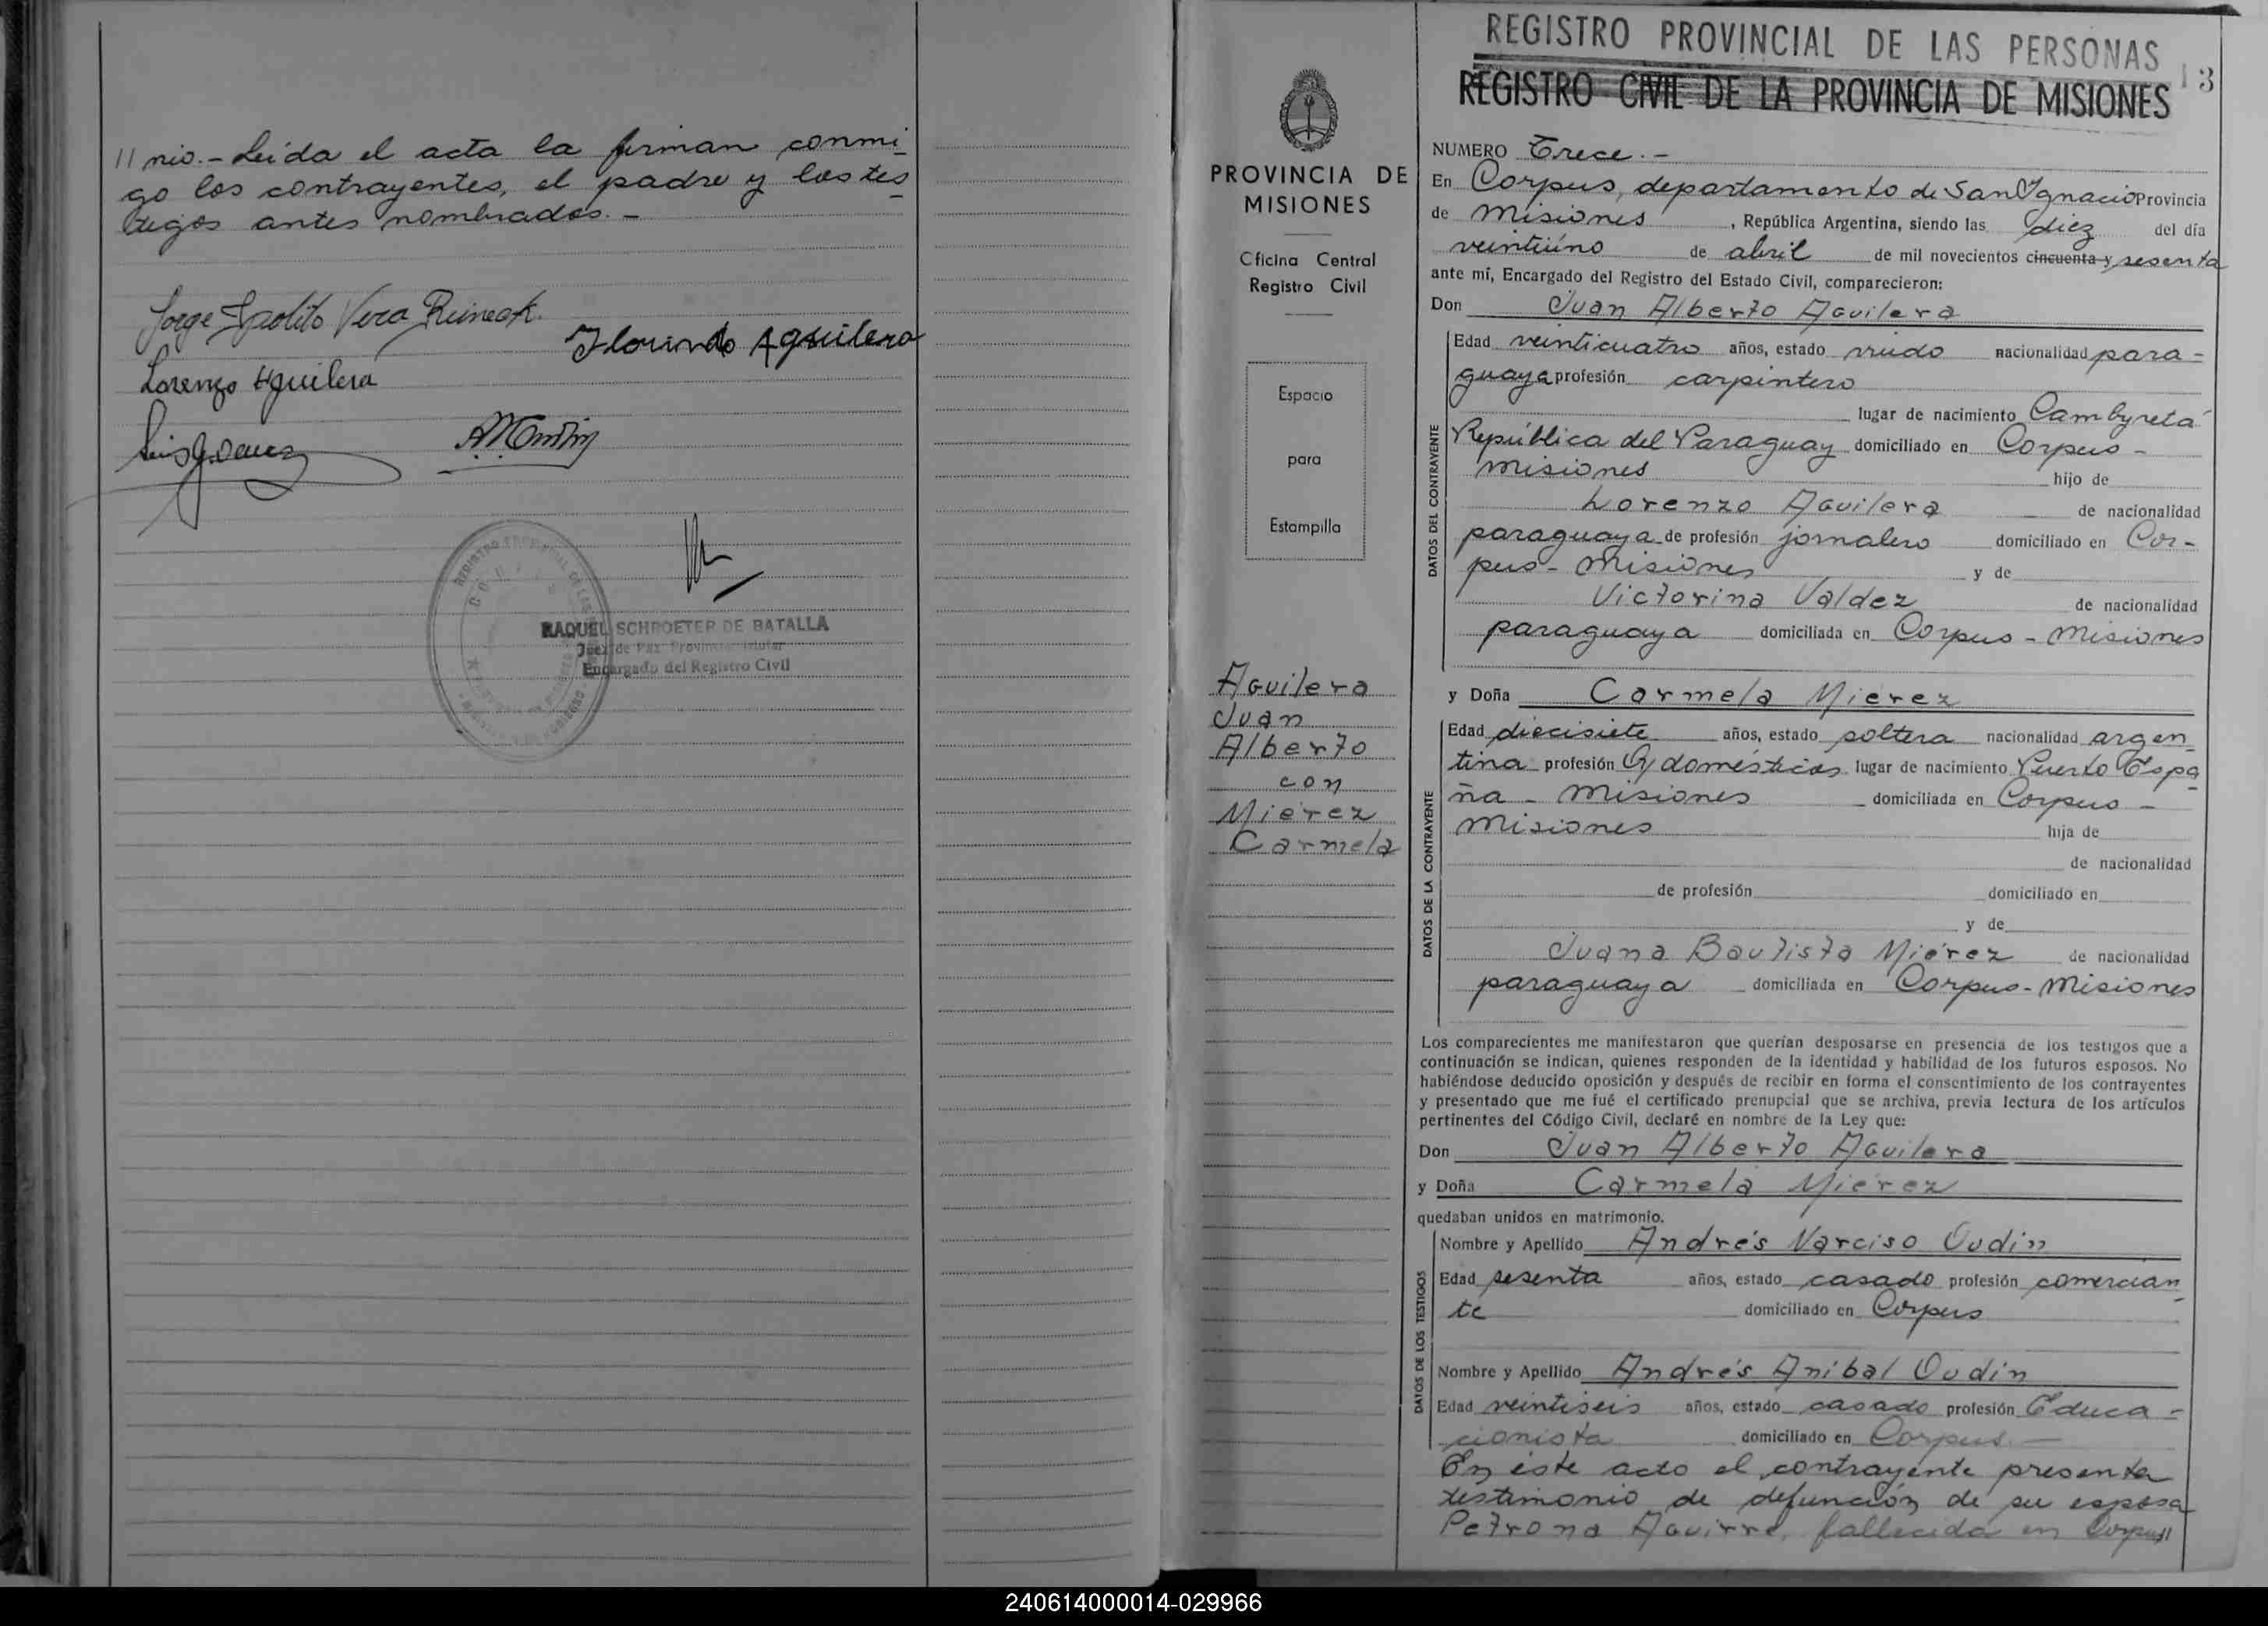 11 nio.- Leída el acta la firman conmi-
go los contrayentes, el padre y los tes-
tigos antes nombrados.-
Jorge Ipolito Vera
Florindo Aguilera
Lorenzo Aguilera
RAQUEL SCHROETER DE BATALLA
Juez de Paz
Encargado del Registro Civil
PROVINCIA DE
MISIONES
Oficina Central
Registro Civil
Espacio
para
Estampilla
Aguilera
Juan
Alberto
con
Mierez
Carmela
REGISTRO PROVINCIAL DE LAS PERSONAS
REGISTRO CIVIL DE LA PROVINCIA DE MISIONES
13
NUMERO Trece.-
En Corpus, departamento de San Ignacio Provincia
de Misiones, República Argentina, siendo las diez del día
veintiúno de abril de mil novecientos cincuenta y sesenta
ante mí, Encargado del Registro del Estado Civil, comparecieron:
Don Juan Alberto Aguilera
DATOS DEL CONTRAYENTE
Edad veinticuatro años, estado viudo nacionalidad para-
guaya profesión carpintero
lugar de nacimiento Cambyretá
República del Paraguay domiciliado en Corpus-
Misiones hijo de
Lorenzo Aguilera de nacionalidad
paraguaya de profesión jornalero domiciliado en Cor-
pus- Misiones y de
Victorina Valdez de nacionalidad
paraguaya domiciliada en Corpus - Misiones
y Doña Carmela Mierez
DATOS DE LA CONTRAYENTE
Edad diecisiete años, estado soltera nacionalidad argen-
tina profesión Q/ domésticos lugar de nacimiento Puerto Espa
ña - Misiones domiciliada en Corpus -
Misiones hija de
de nacionalidad
de profesión domiciliado en
y de
Juana Bautista Miérez de nacionalidad
paraguaya domiciliada en Corpus- Misiones
Los comparecientes me manifestaron que querían desposarse en presencia de los testigos que a
continuación se indican, quienes responden de la identidad y habilidad de los futuros esposos. No
habiéndose deducido oposición y después de recibir en forma el consentimiento de los contrayentes
y presentado que me fué el certificado prenupcial que se archiva, previa lectura de los artículos
pertinentes del Código Civil, declaré en nombre de la Ley que:
Don Juan Alberto Aguilera
y Doña Carmela Miérez
quedaban unidos en matrimonio.
DATOS DE LOS TESTIGOS
Nombre y Apellido Andrés Narciso Oudin
Edad sesenta años, estado casado profesión comercian-
te domiciliado en Corpus
Nombre y Apellido Andrés Anibal Oudin
Edad veintiseis años, estado casado profesión Educa-
cionista domiciliado en Corpus.-
En éste acto el contrayente presenta
testimonio de defunción de su esposa
Petrona Aguirre, fallecida en Corpus//
240614000014-029966